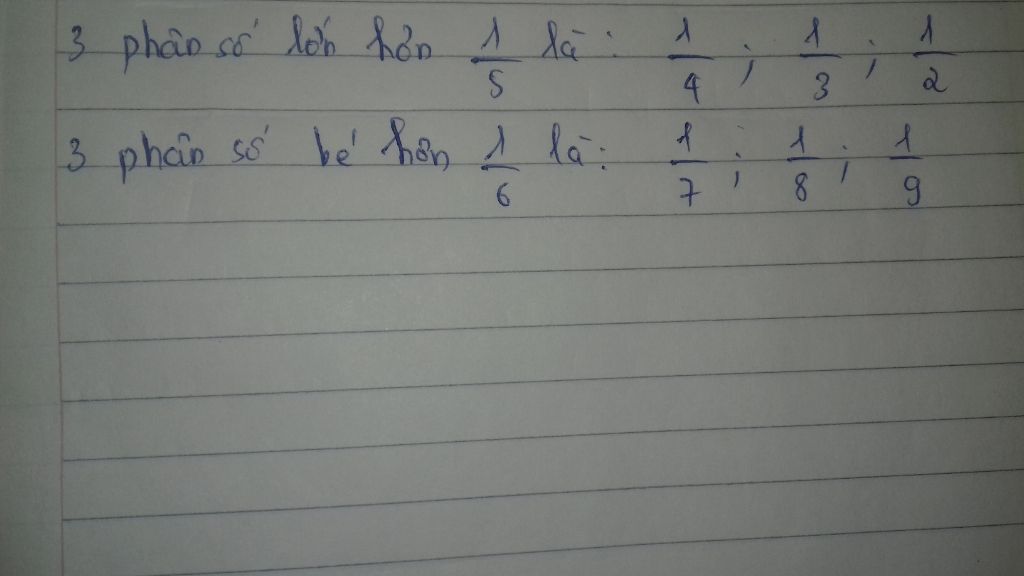 3 phân số lớn hơn 1/5 là: 1/4 ; 1/3 ; 1/2
3 phân số bé hơn 1/6 là: 1/7 ; 1/8 ; 1/9